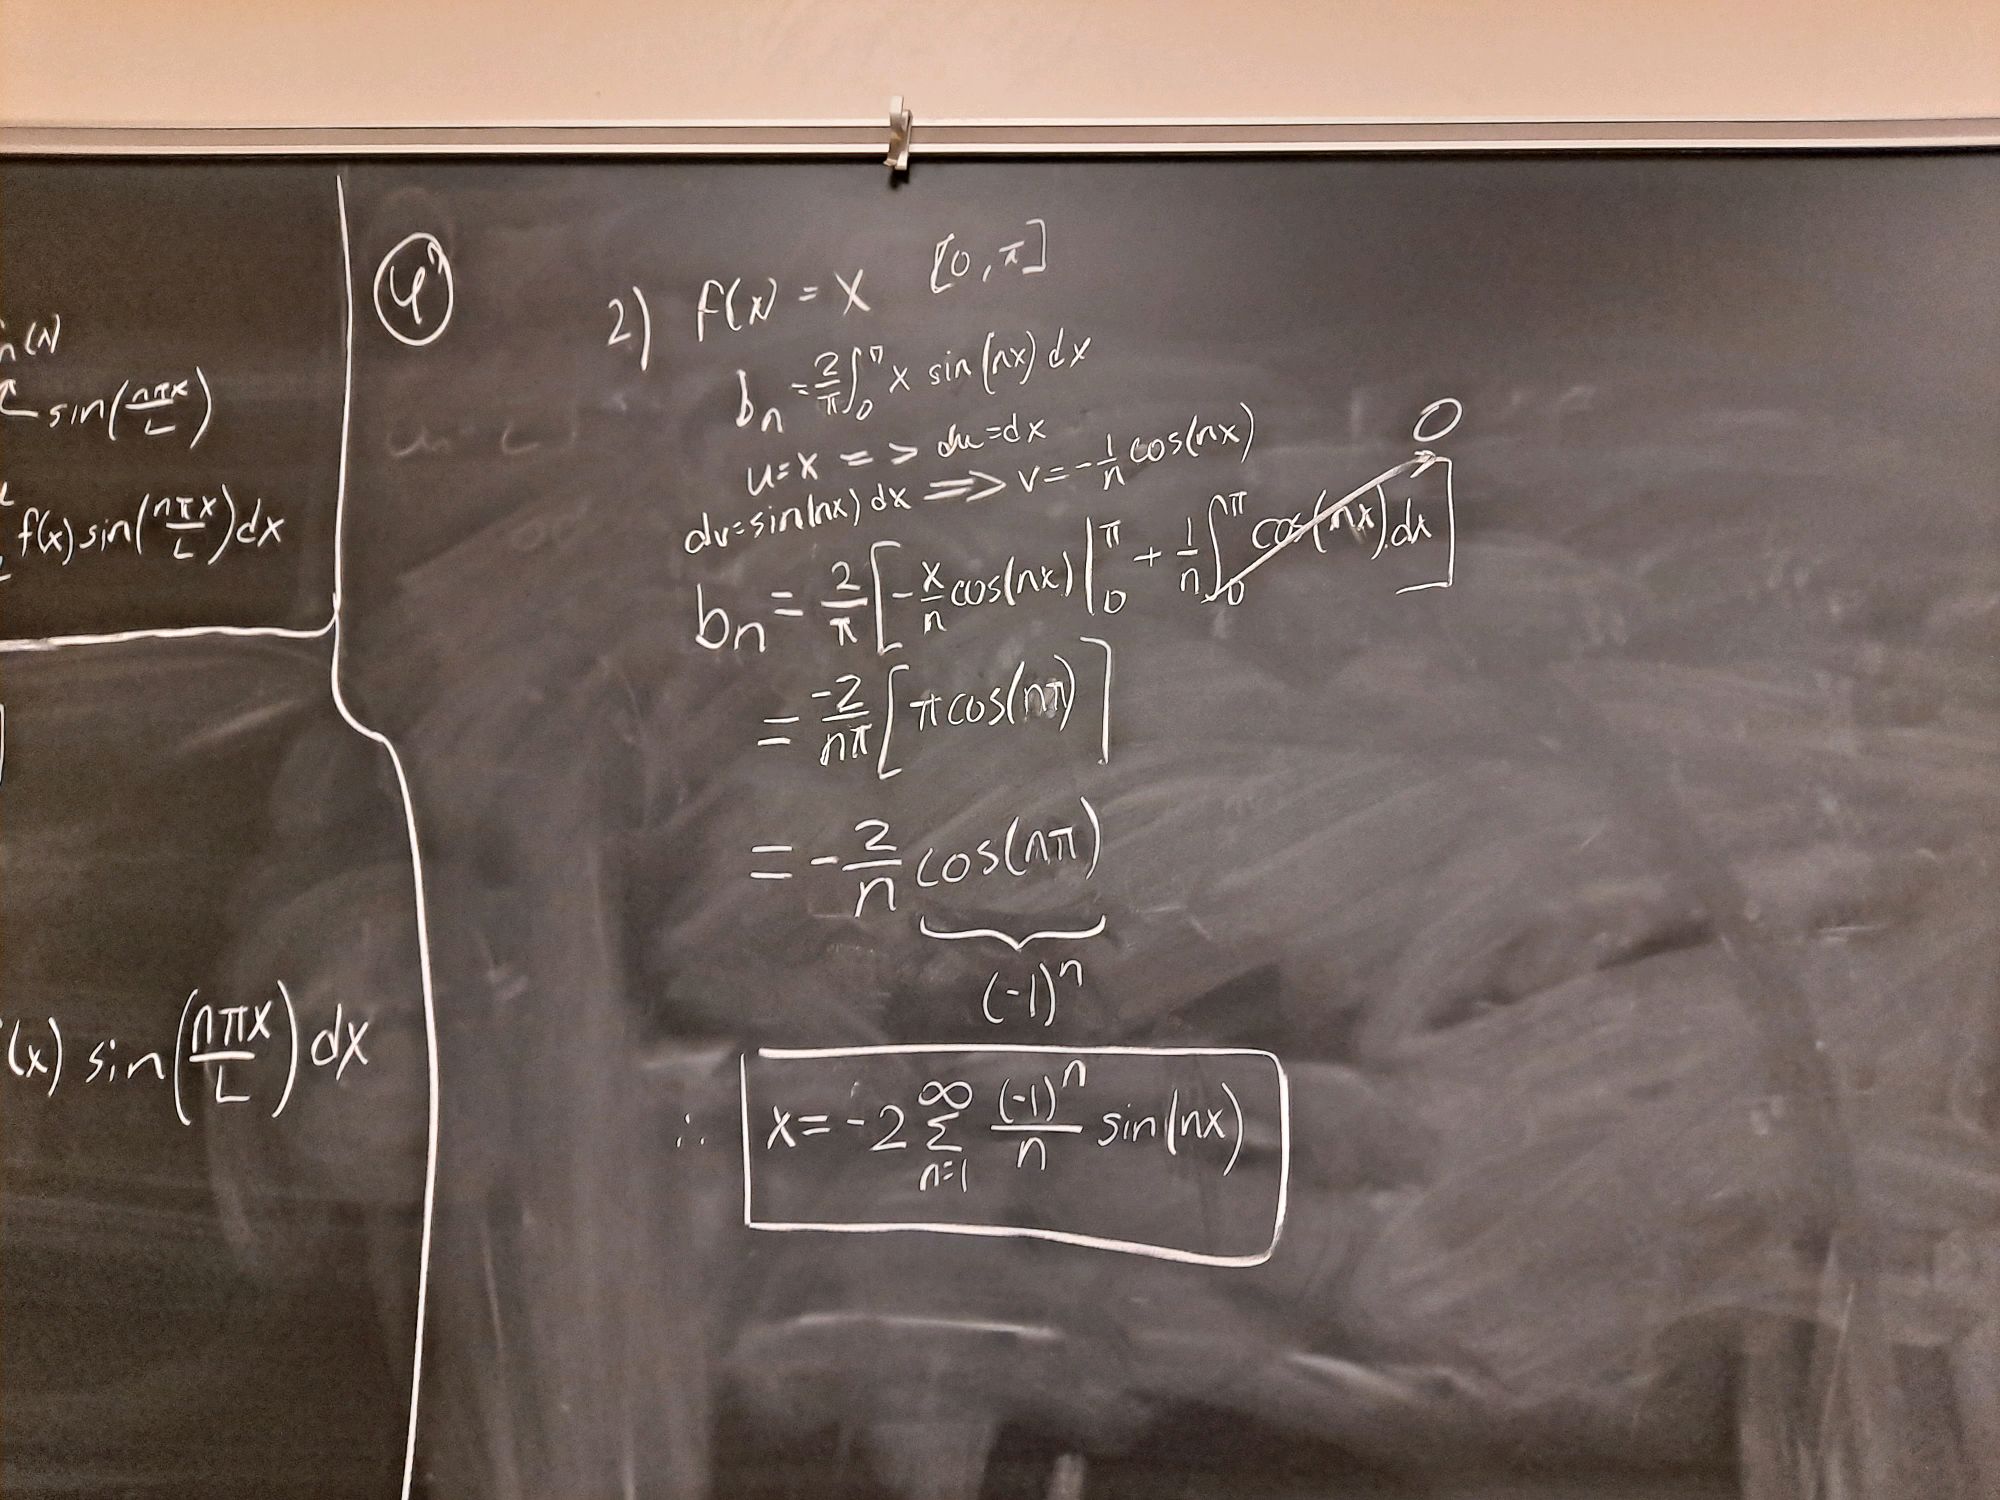 sin(nπx/L)
f(x) sin(nπx/L) dx
(x) sin(nπx/L) dx
4
2) f(x) = x [0, π]
bn = 2/π ∫₀^π x sin(nx) dx
u = x => du = dx
dv = sin(nx) dx => v = -1/n cos(nx)
bn = 2/π [ -x/n cos(nx) |₀^π + 1/n ∫₀^π cos(nx) dx ] 0
= -2/nπ [ π cos(nπ) ]
= -2/n cos(nπ)
(-1)ⁿ
∴ x = -2 ∑_{n=1}^∞ (-1)ⁿ/n sin(nx)